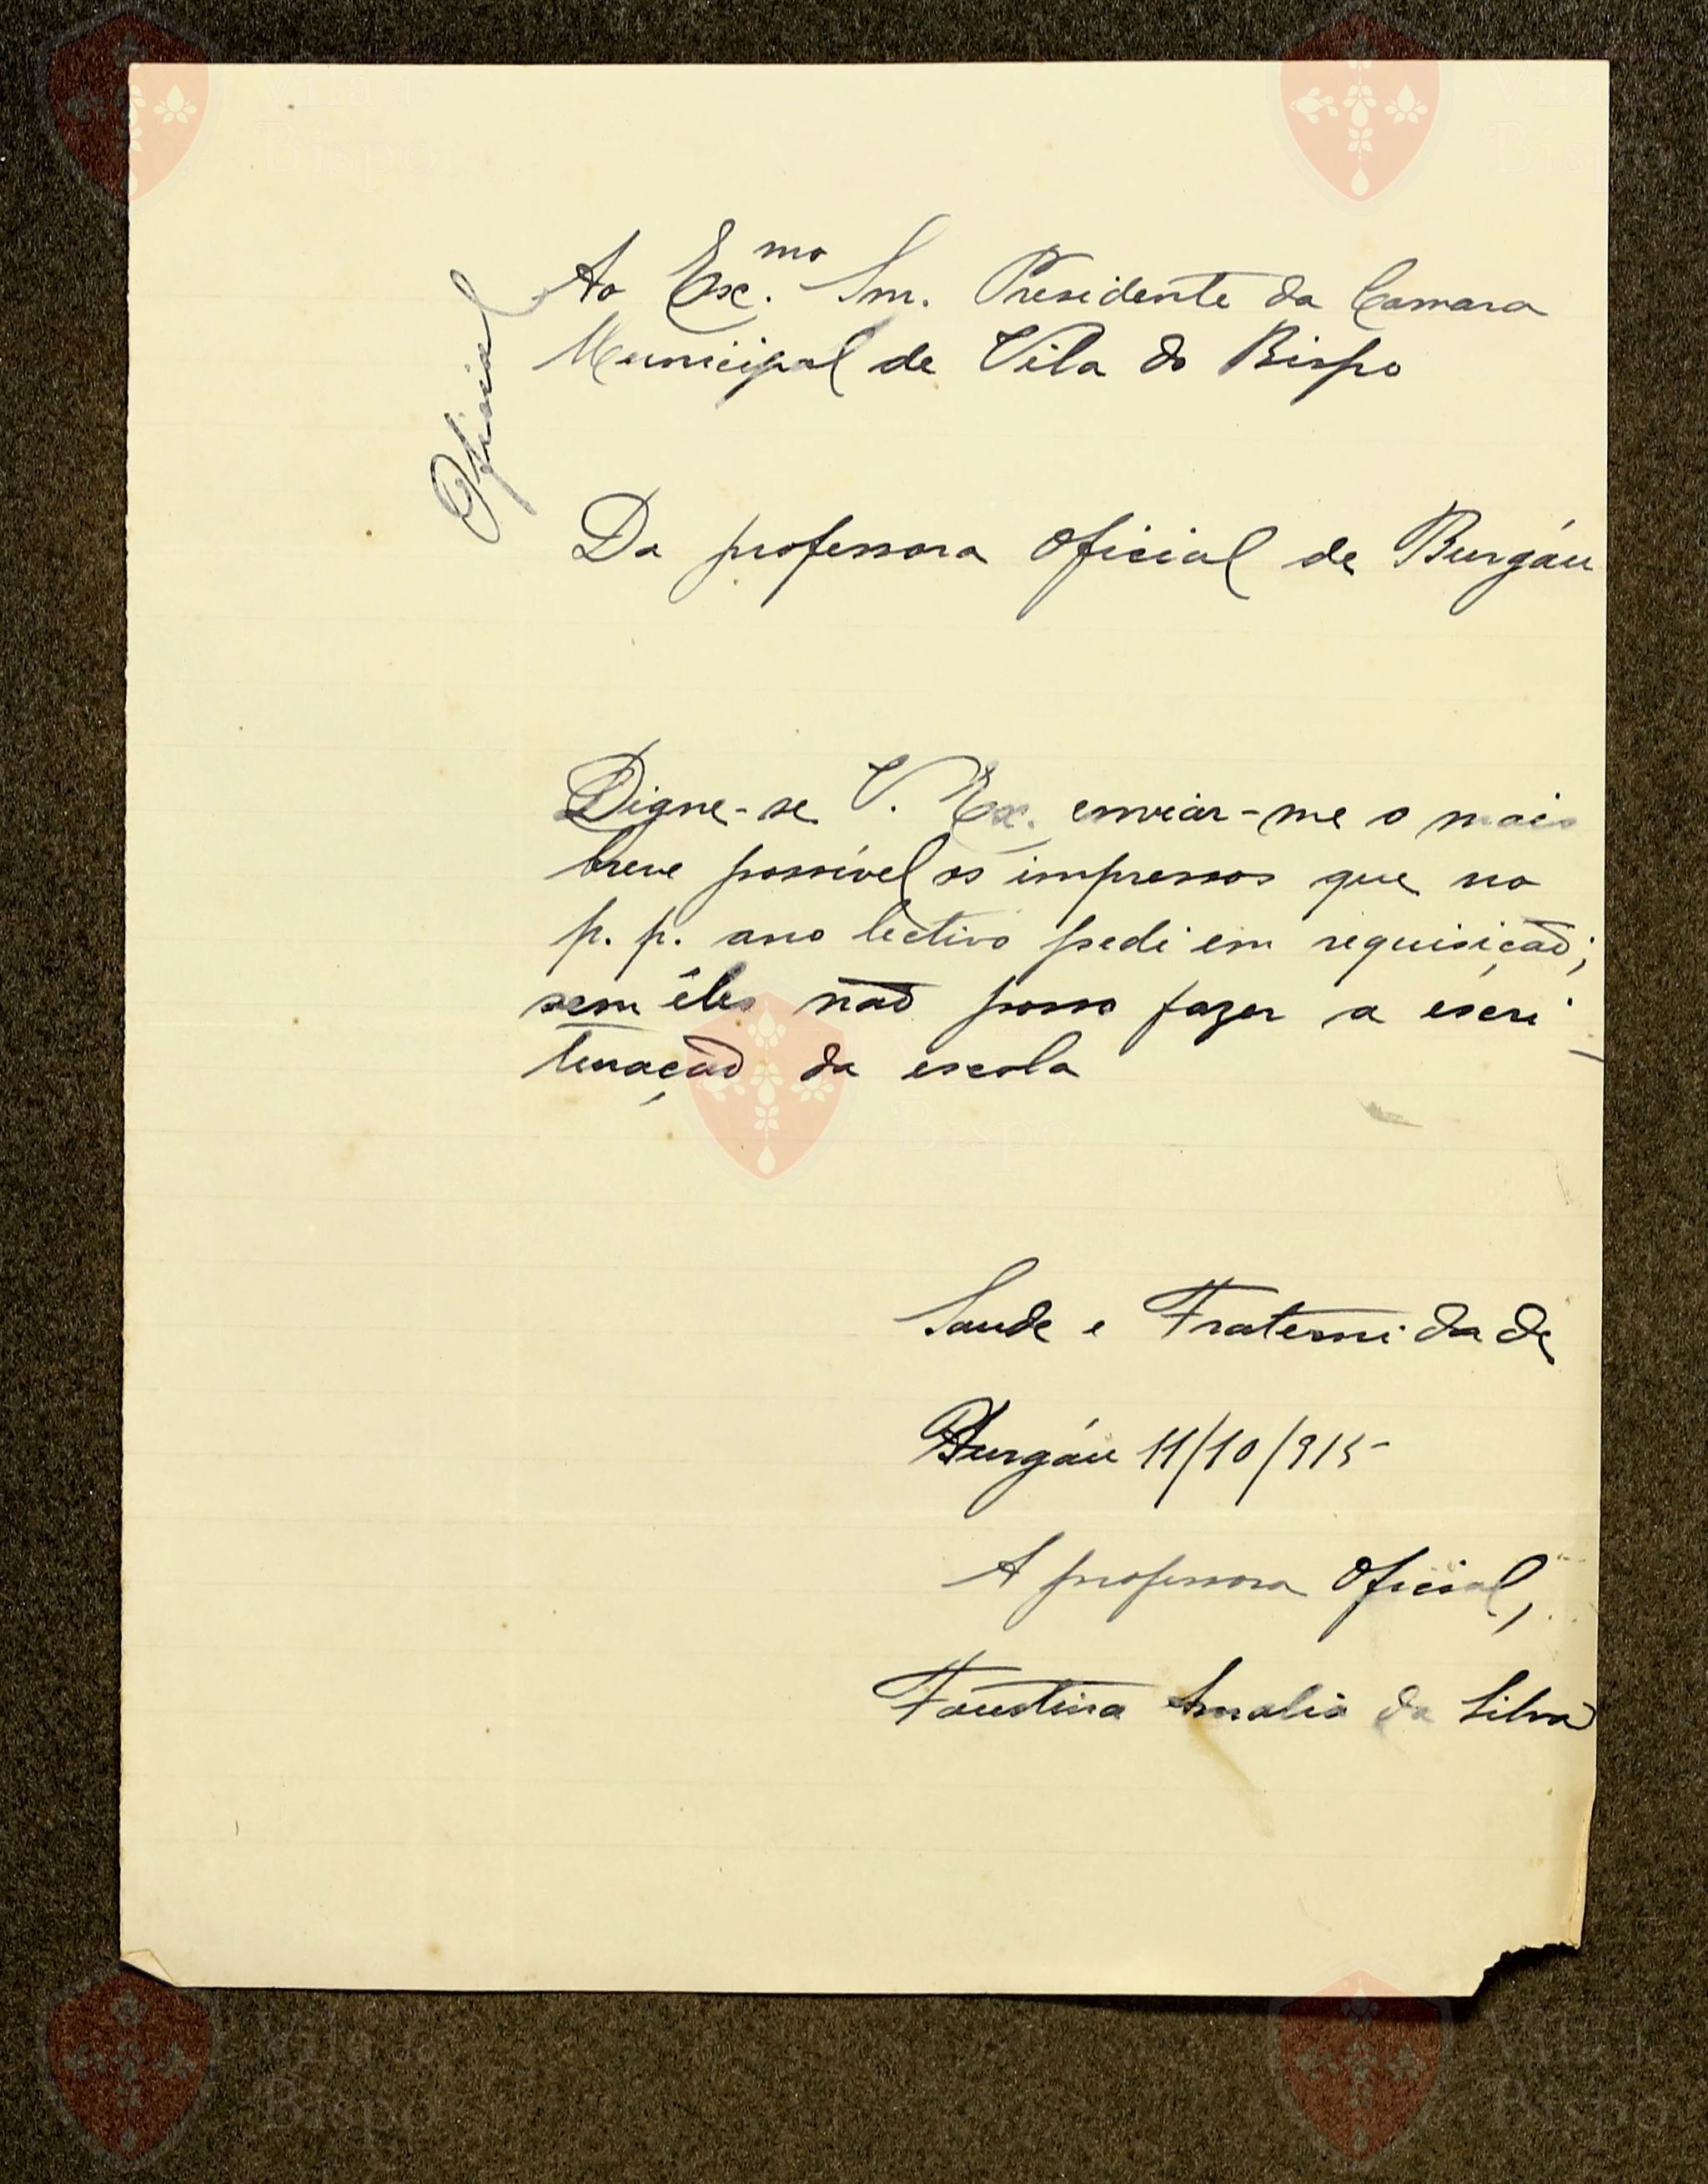 Oficial
Ao Ex.mo Snr. Presidente da Camara
Municipal de Vila do Bispo
Da professora oficial de Burgáu
Digne-se V. Ex. enviar-me o mais
breve possível os impressos que no
p. p. ano lectivo pedi em requisição;
sem êles não posso fazer a escri-
turação da escola
Saude e Fraternidade
Burgáu 11/10/915
A professora oficial,
Faustina Amalia da Silva
Vila do
Bispo